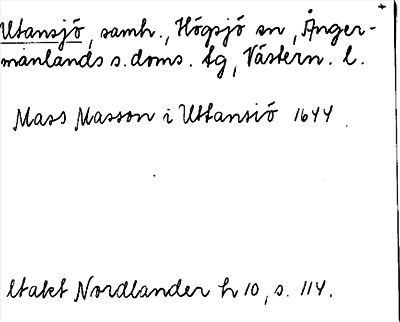 Utansjö, samh., Högsjö sn, Ånger-
manlands s. doms. tg, Västern. l.
Mass Masson i Uttansiö 1644.
Utakt Nordlander h 10, s. 114.